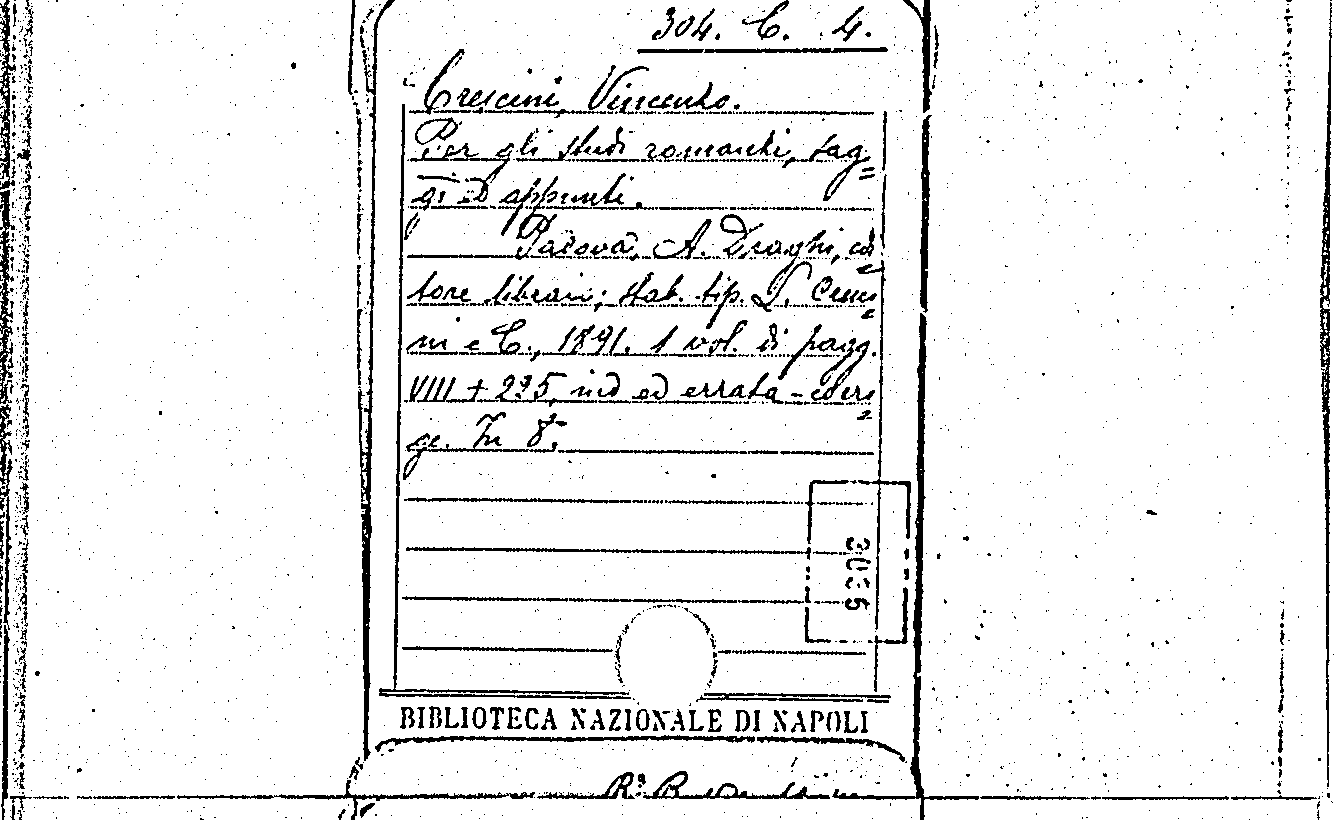 304. C. 4.
Crescini, Vincenzo.
Per gli studi romanzi, sag=
gi ed appunti.
Padova, A. Draghi, edi=
tore libraio; stab. tip. L. Cresci=
ni e C., 1891. 1 vol. di pagg.
VIII + 235, ind ed errata-corri=
ge. In 8.°
BIBLIOTECA NAZIONALE DI NAPOLI